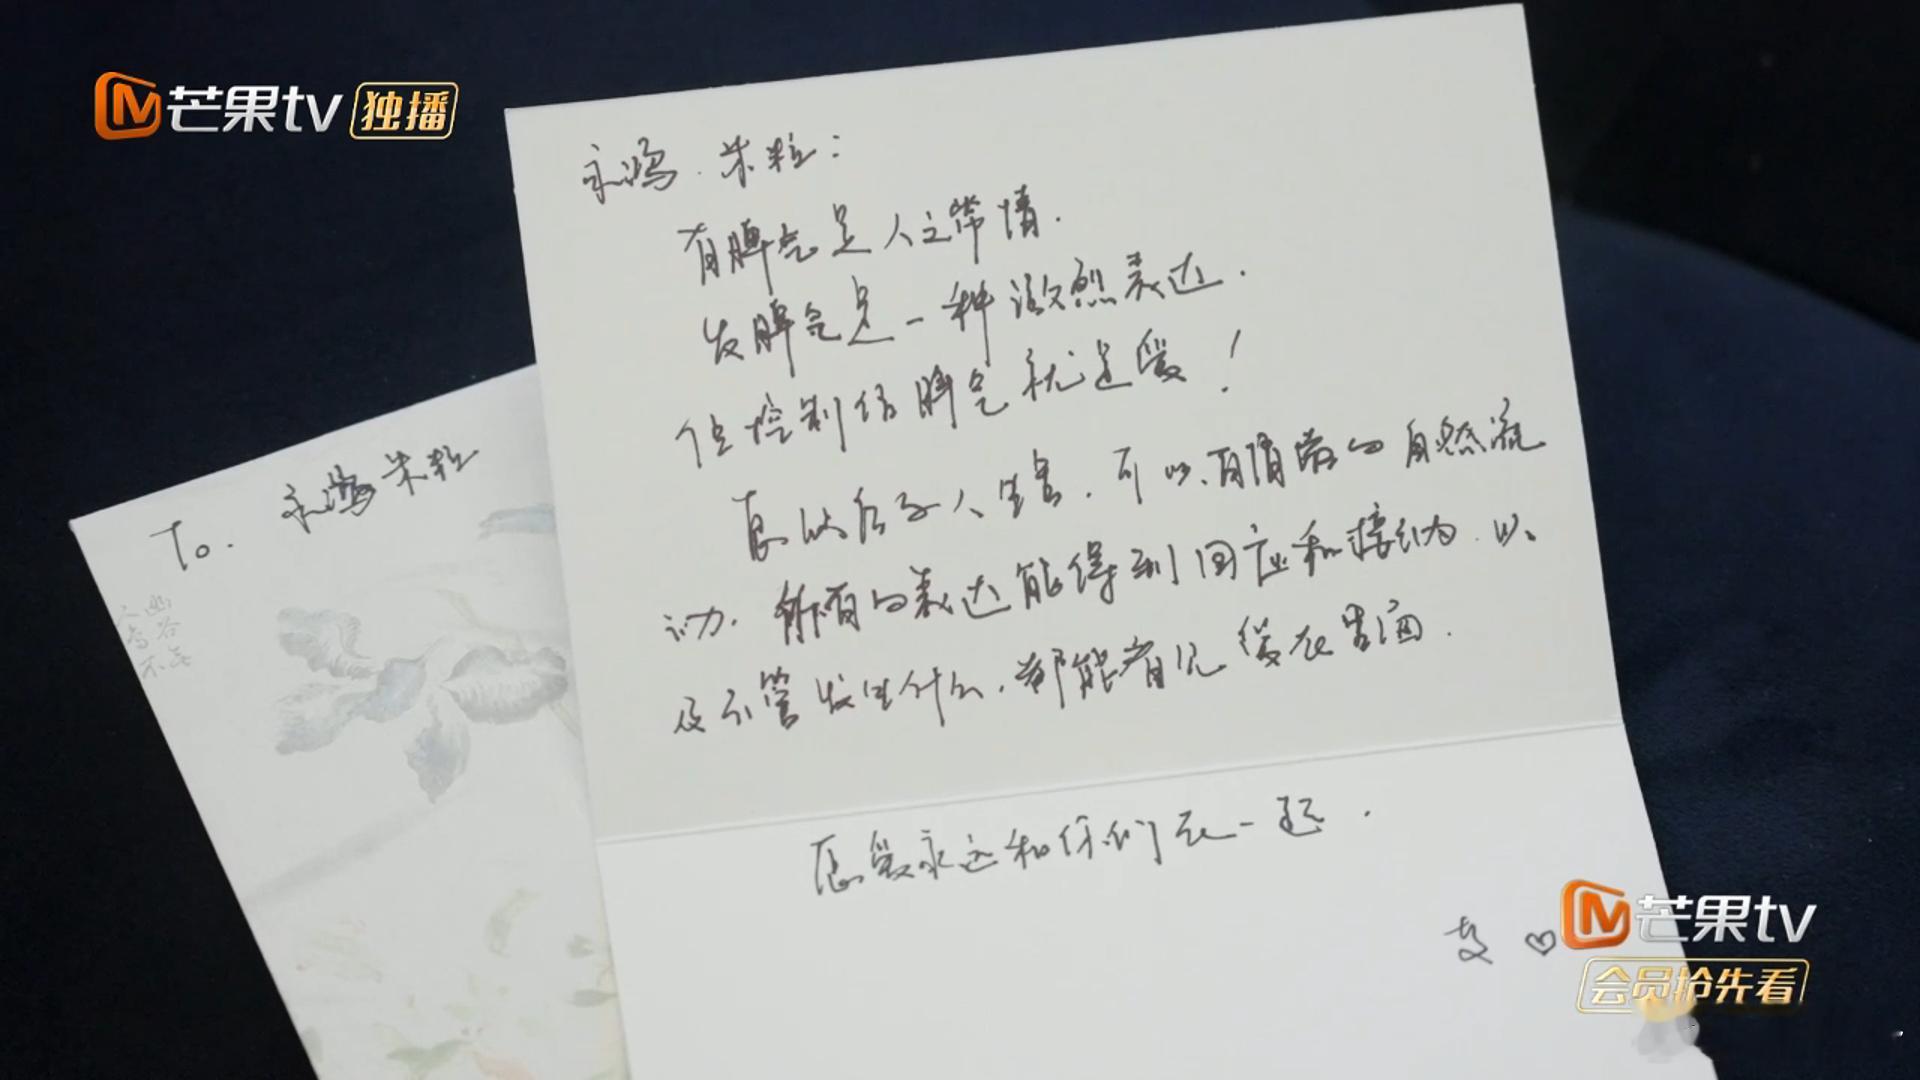 芒果tv 独播
永鸿·米粒：
有脾气是人之常情.
发脾气是一种激烈表达.
但控制住脾气就是爱！
真的后子人生里，可以有情绪的自然流
动. 所有的表达能得到回应和接纳. 以
及不管发生什么，都能看见爱在普通.
愿爱永远和你们在一起.
To. 永鸿米粒
芒果tv
会员抢先看